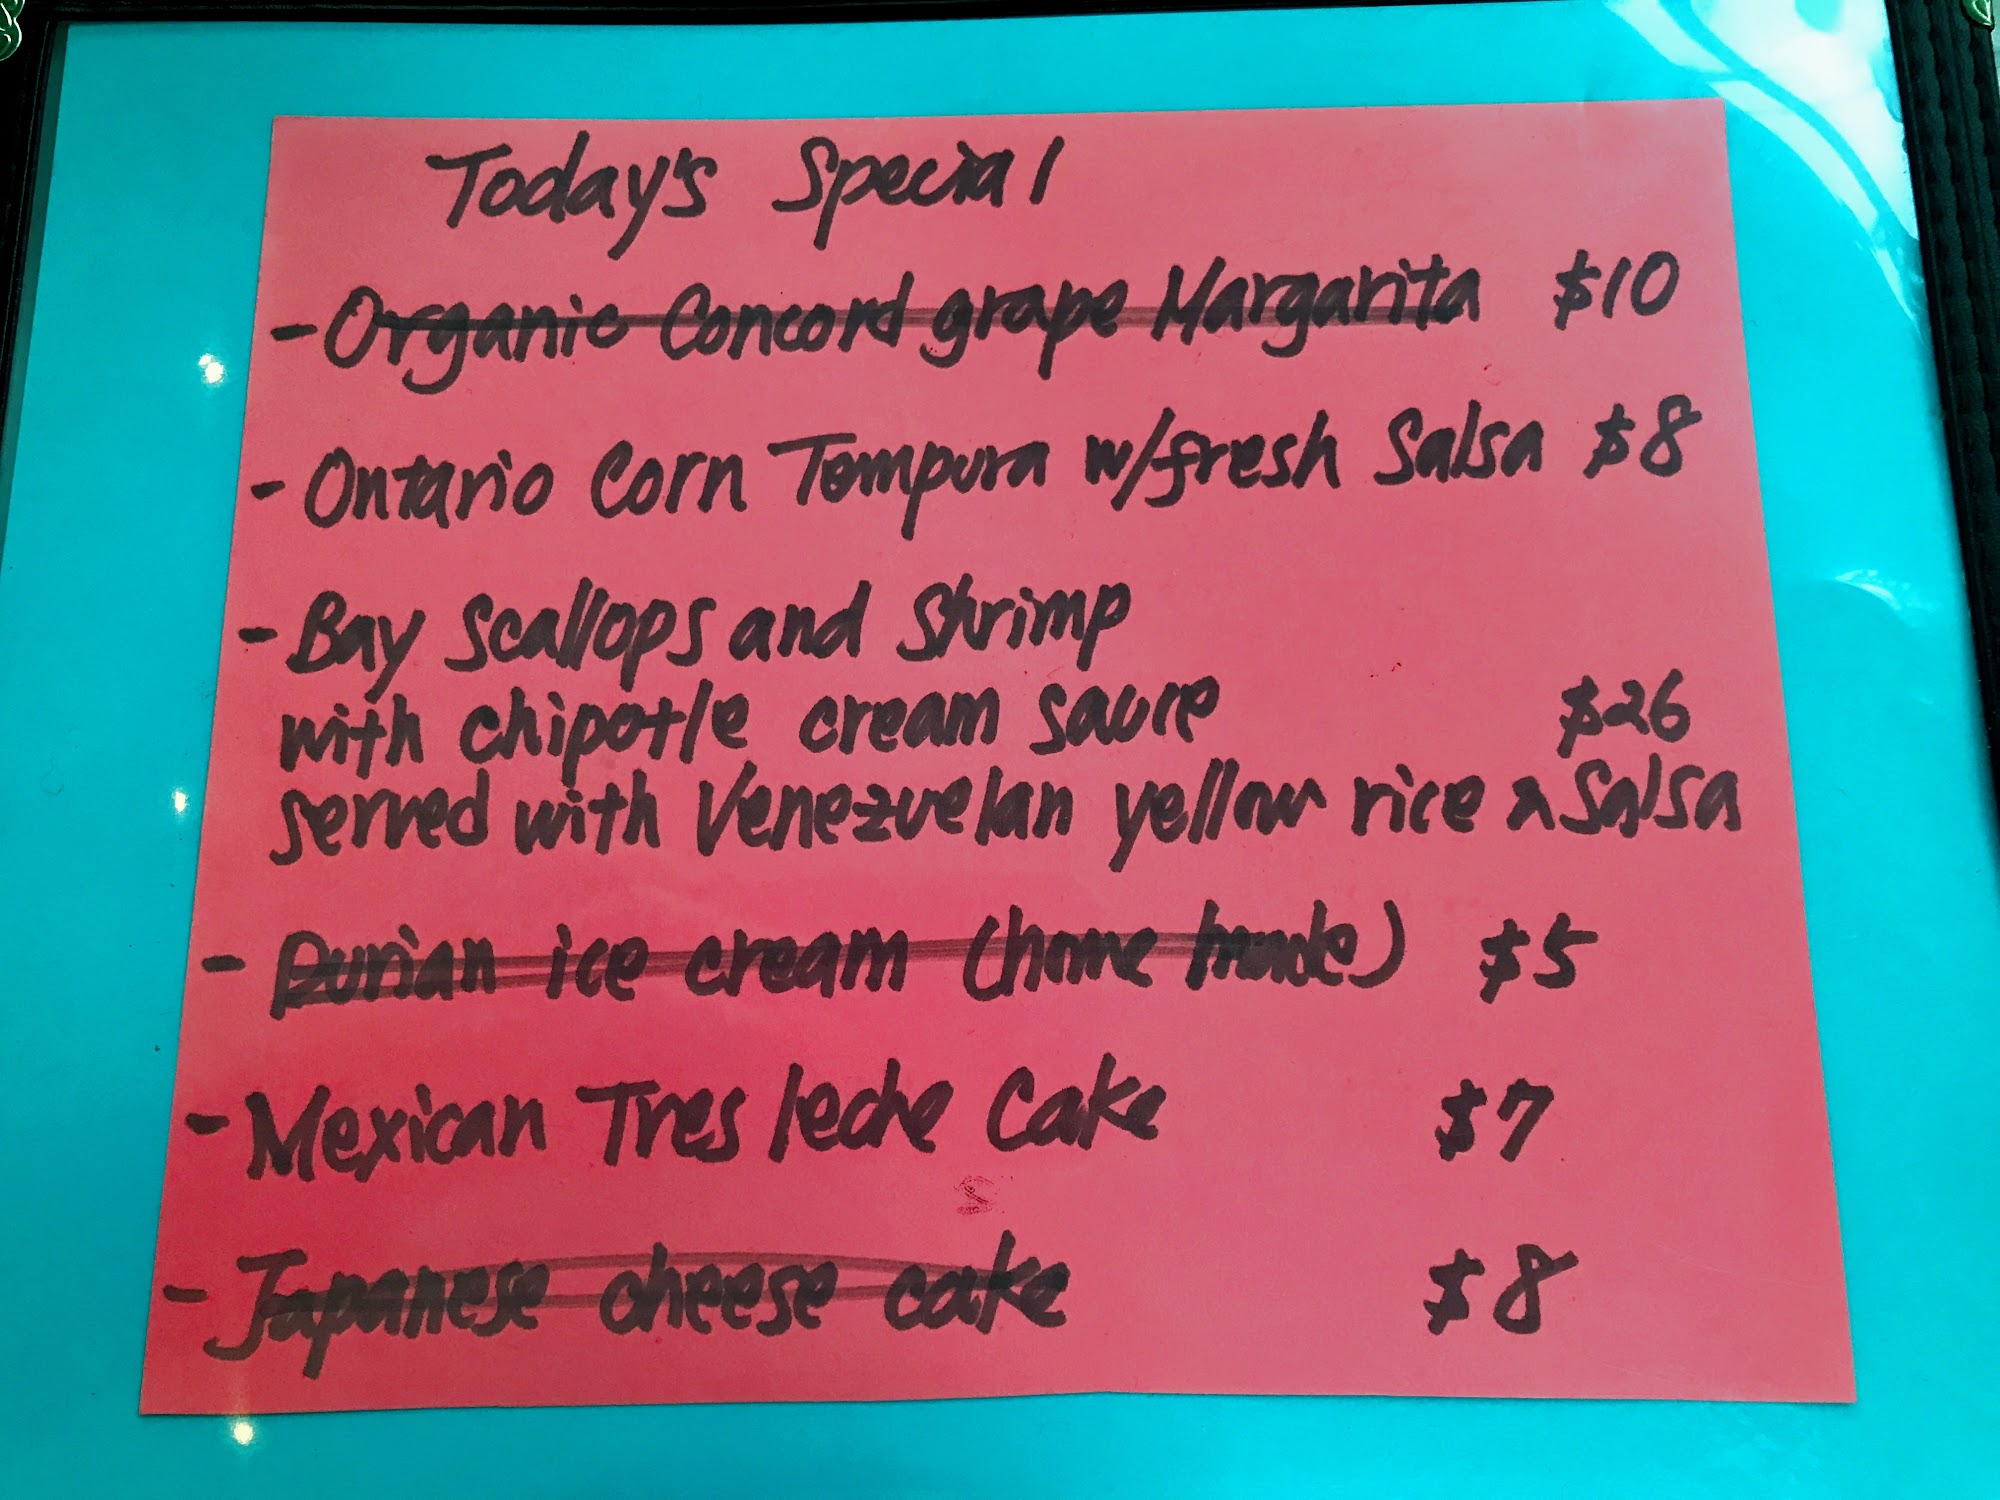 Today's Special
- Organic Concord grape Margarita $10
- Ontario Corn Tempura w/fresh Salsa $8
- Bay Scallops and Shrimp
with chipotle cream sauce $26
served with Venezuelan yellow rice n Salsa
- Durian ice cream (home made) $5
- Mexican Tres leche Cake $7
- Japanese cheese cake $8